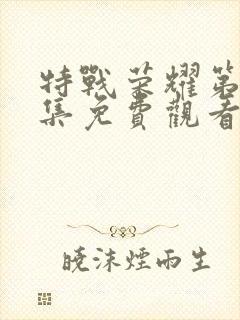 特戰荣耀第
集免費觀看
曉沫煙雨生